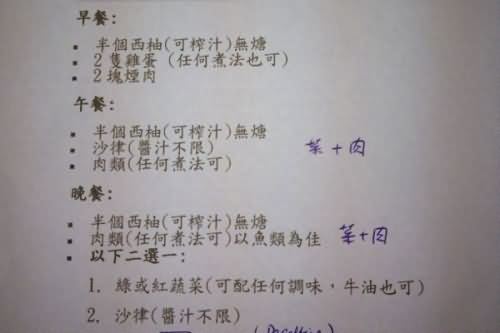 早餐:
▪ 半個西柚(可榨汁)無糖
▪ 2隻雞蛋 (任何煮法也可)
▪ 2塊煙肉
午餐:
▪ 半個西柚(可榨汁)無糖
▪ 沙律(醬汁不限) 菜+肉
▪ 肉類(任何煮法可)
晚餐:
▪ 半個西柚(可榨汁)無糖
▪ 肉類(任何煮法可)以魚類為佳 菜+肉
▪ 以下二選一:
1. 綠或紅蔬菜(可配任何調味，牛油也可)
2. 沙律(醬汁不限)